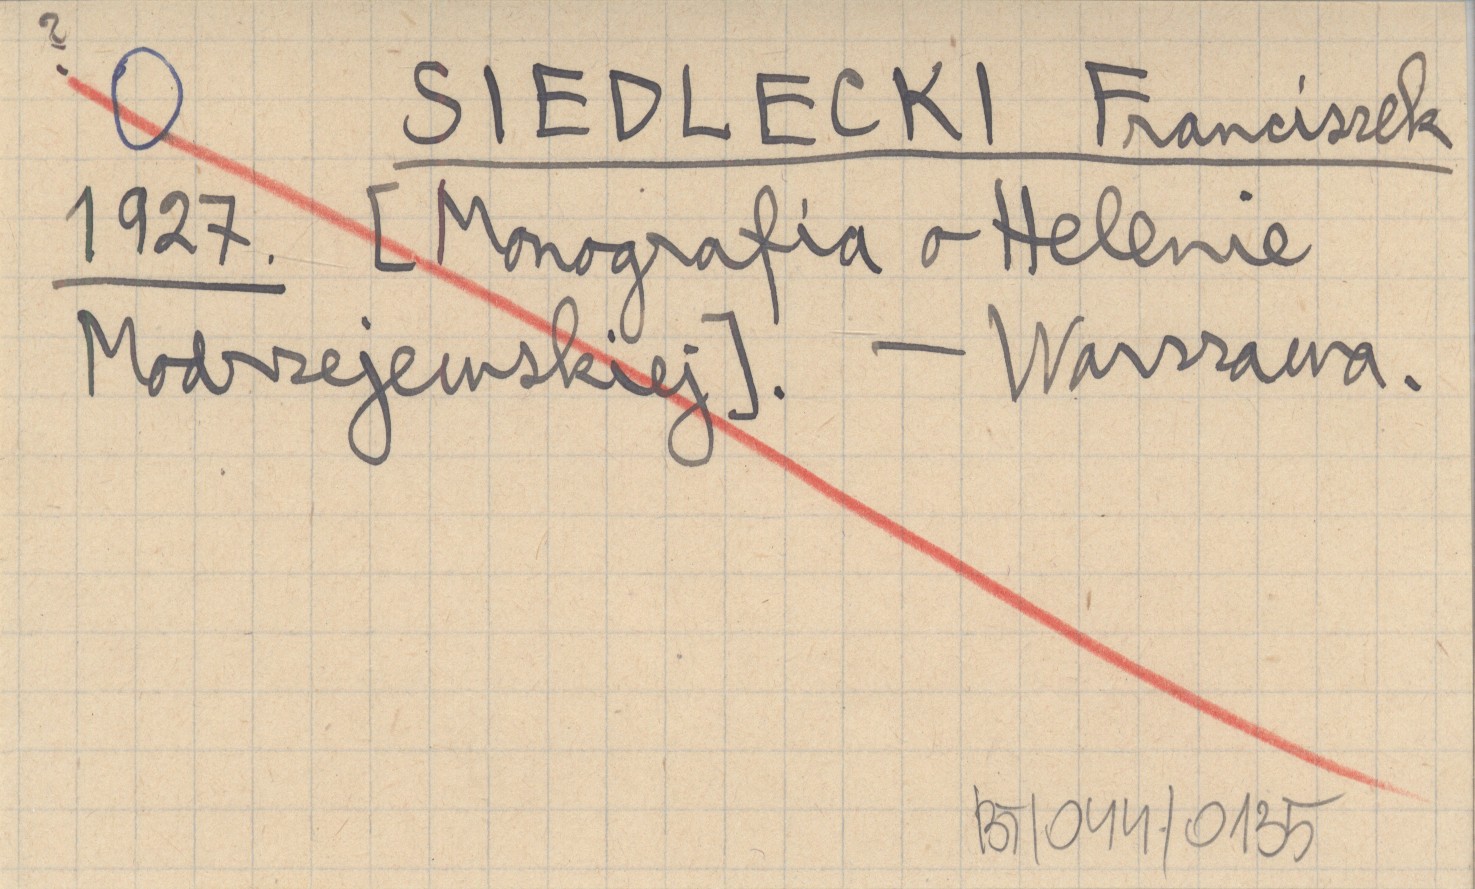 ?
SIEDLECKI Franciszek
1927. [Monografia o Helenie
Modrzejewskiej]. — Warszawa.
BT/044/0135